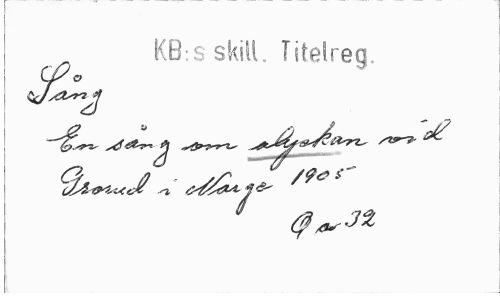 KB:s skill. Titelreg.
Sång
En sång om olyckan vid
Grorud i Norge 1905
Q a 32